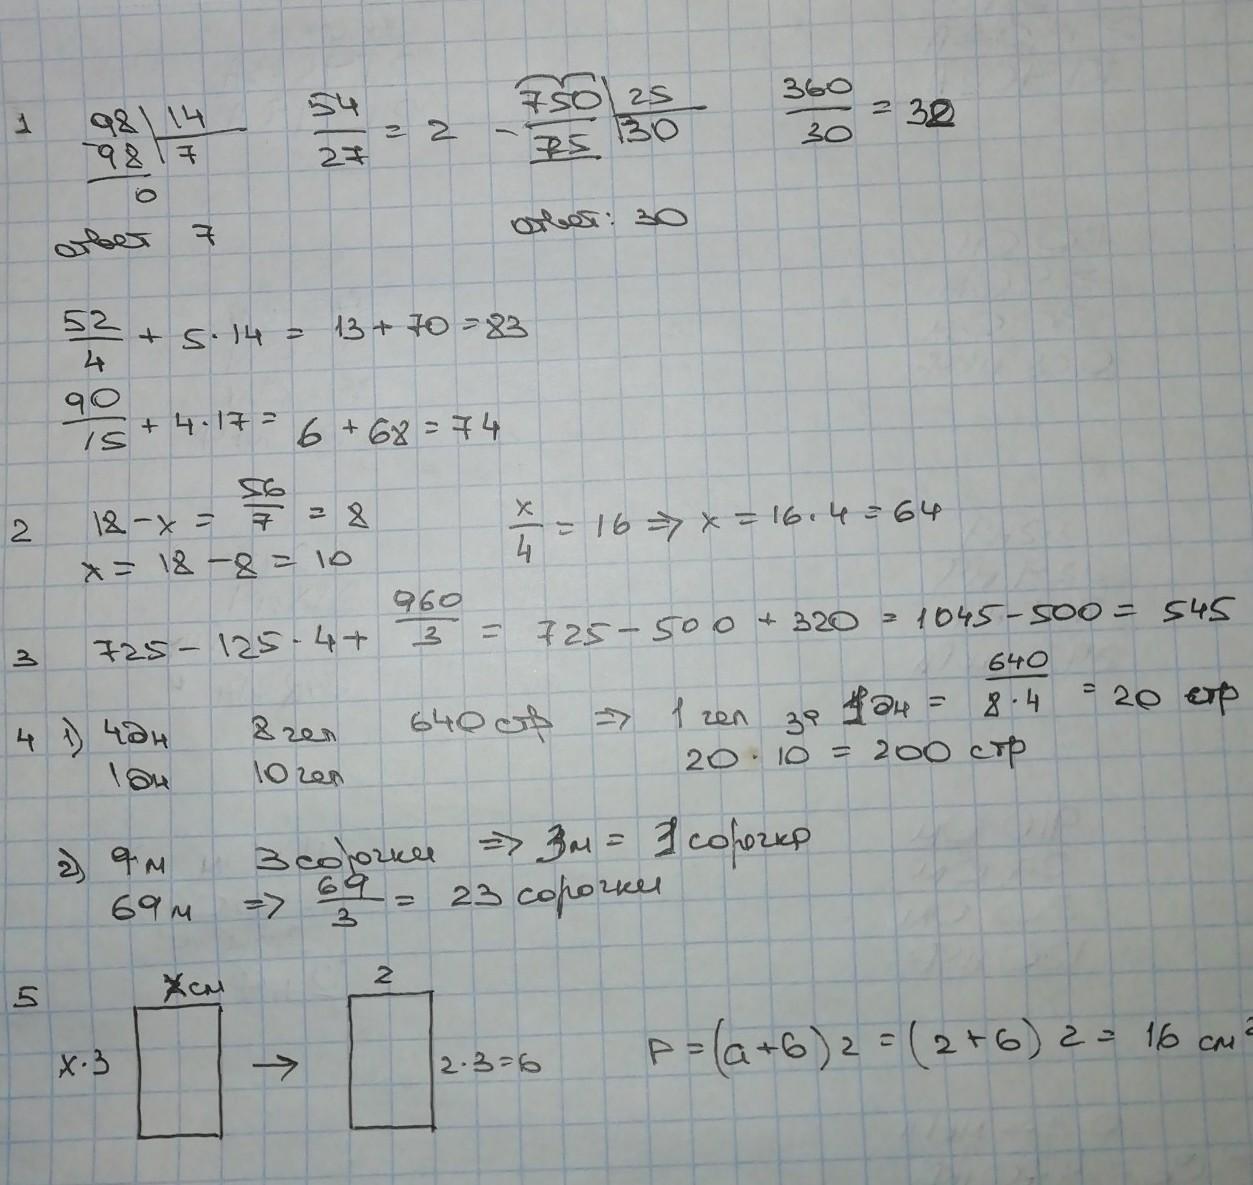 1 98 | 14 54/27 = 2 - 750 | 25 360/30 = 32
98 7 75 30
0
ответ 7 ответ: 30
52/4 + 5·14 = 13 + 70 = 83
90/15 + 4·17 = 6 + 68 = 74
2 18 - x = 56/7 = 8 x/4 = 16 ⇒ x = 16·4 = 64
x = 18 - 8 = 10
3 725 - 125·4 + 960/3 = 725 - 500 + 320 = 1045 - 500 = 545
4 1) 4дн 8чел 640 стр ⇒ 1 чел за 1дн = 640/8·4 = 20 стр
1дн 10чел 20·10 = 200 стр
2) 9м 3сорочки ⇒ 3м = 1сорочка
69м ⇒ 69/3 = 23 сорочки
5 xсм 2
x·3 → 2·3=6 P = (a+b)2 = (2+6)2 = 16 см²